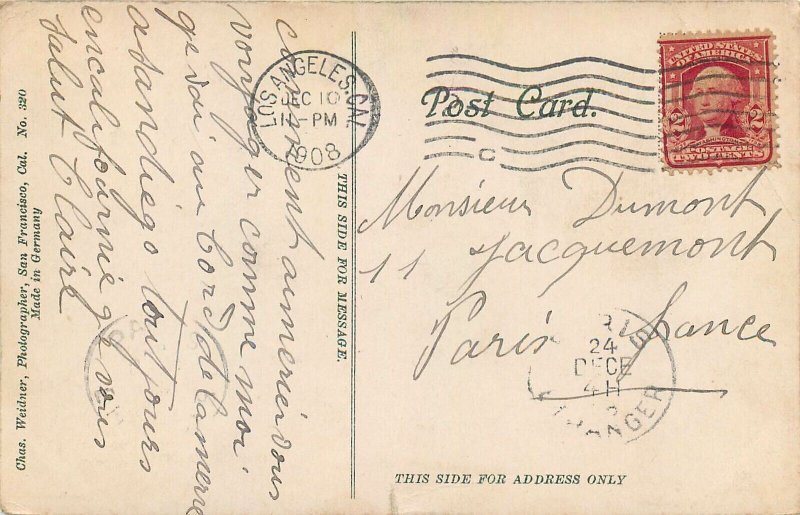 comment aimeriez vous
voyager comme moi
je vai au bord de la mere
a sandiego toujours
en californie je vous
salut Claire
Chas. Weidner, Photographer, San Francisco, Cal. No. 320
Made in Germany
THIS SIDE FOR MESSAGE.
LOS ANGELES, CAL.
DEC 10
11-PM
1908
Post Card.
C
UNITED STATES
OF AMERICA
2 2
POSTAGE
TWO CENTS
Monsieur Dumont
11 Jacquemont
Paris france
PARIS
24
DECE
4H
ETRANGER
THIS SIDE FOR ADDRESS ONLY